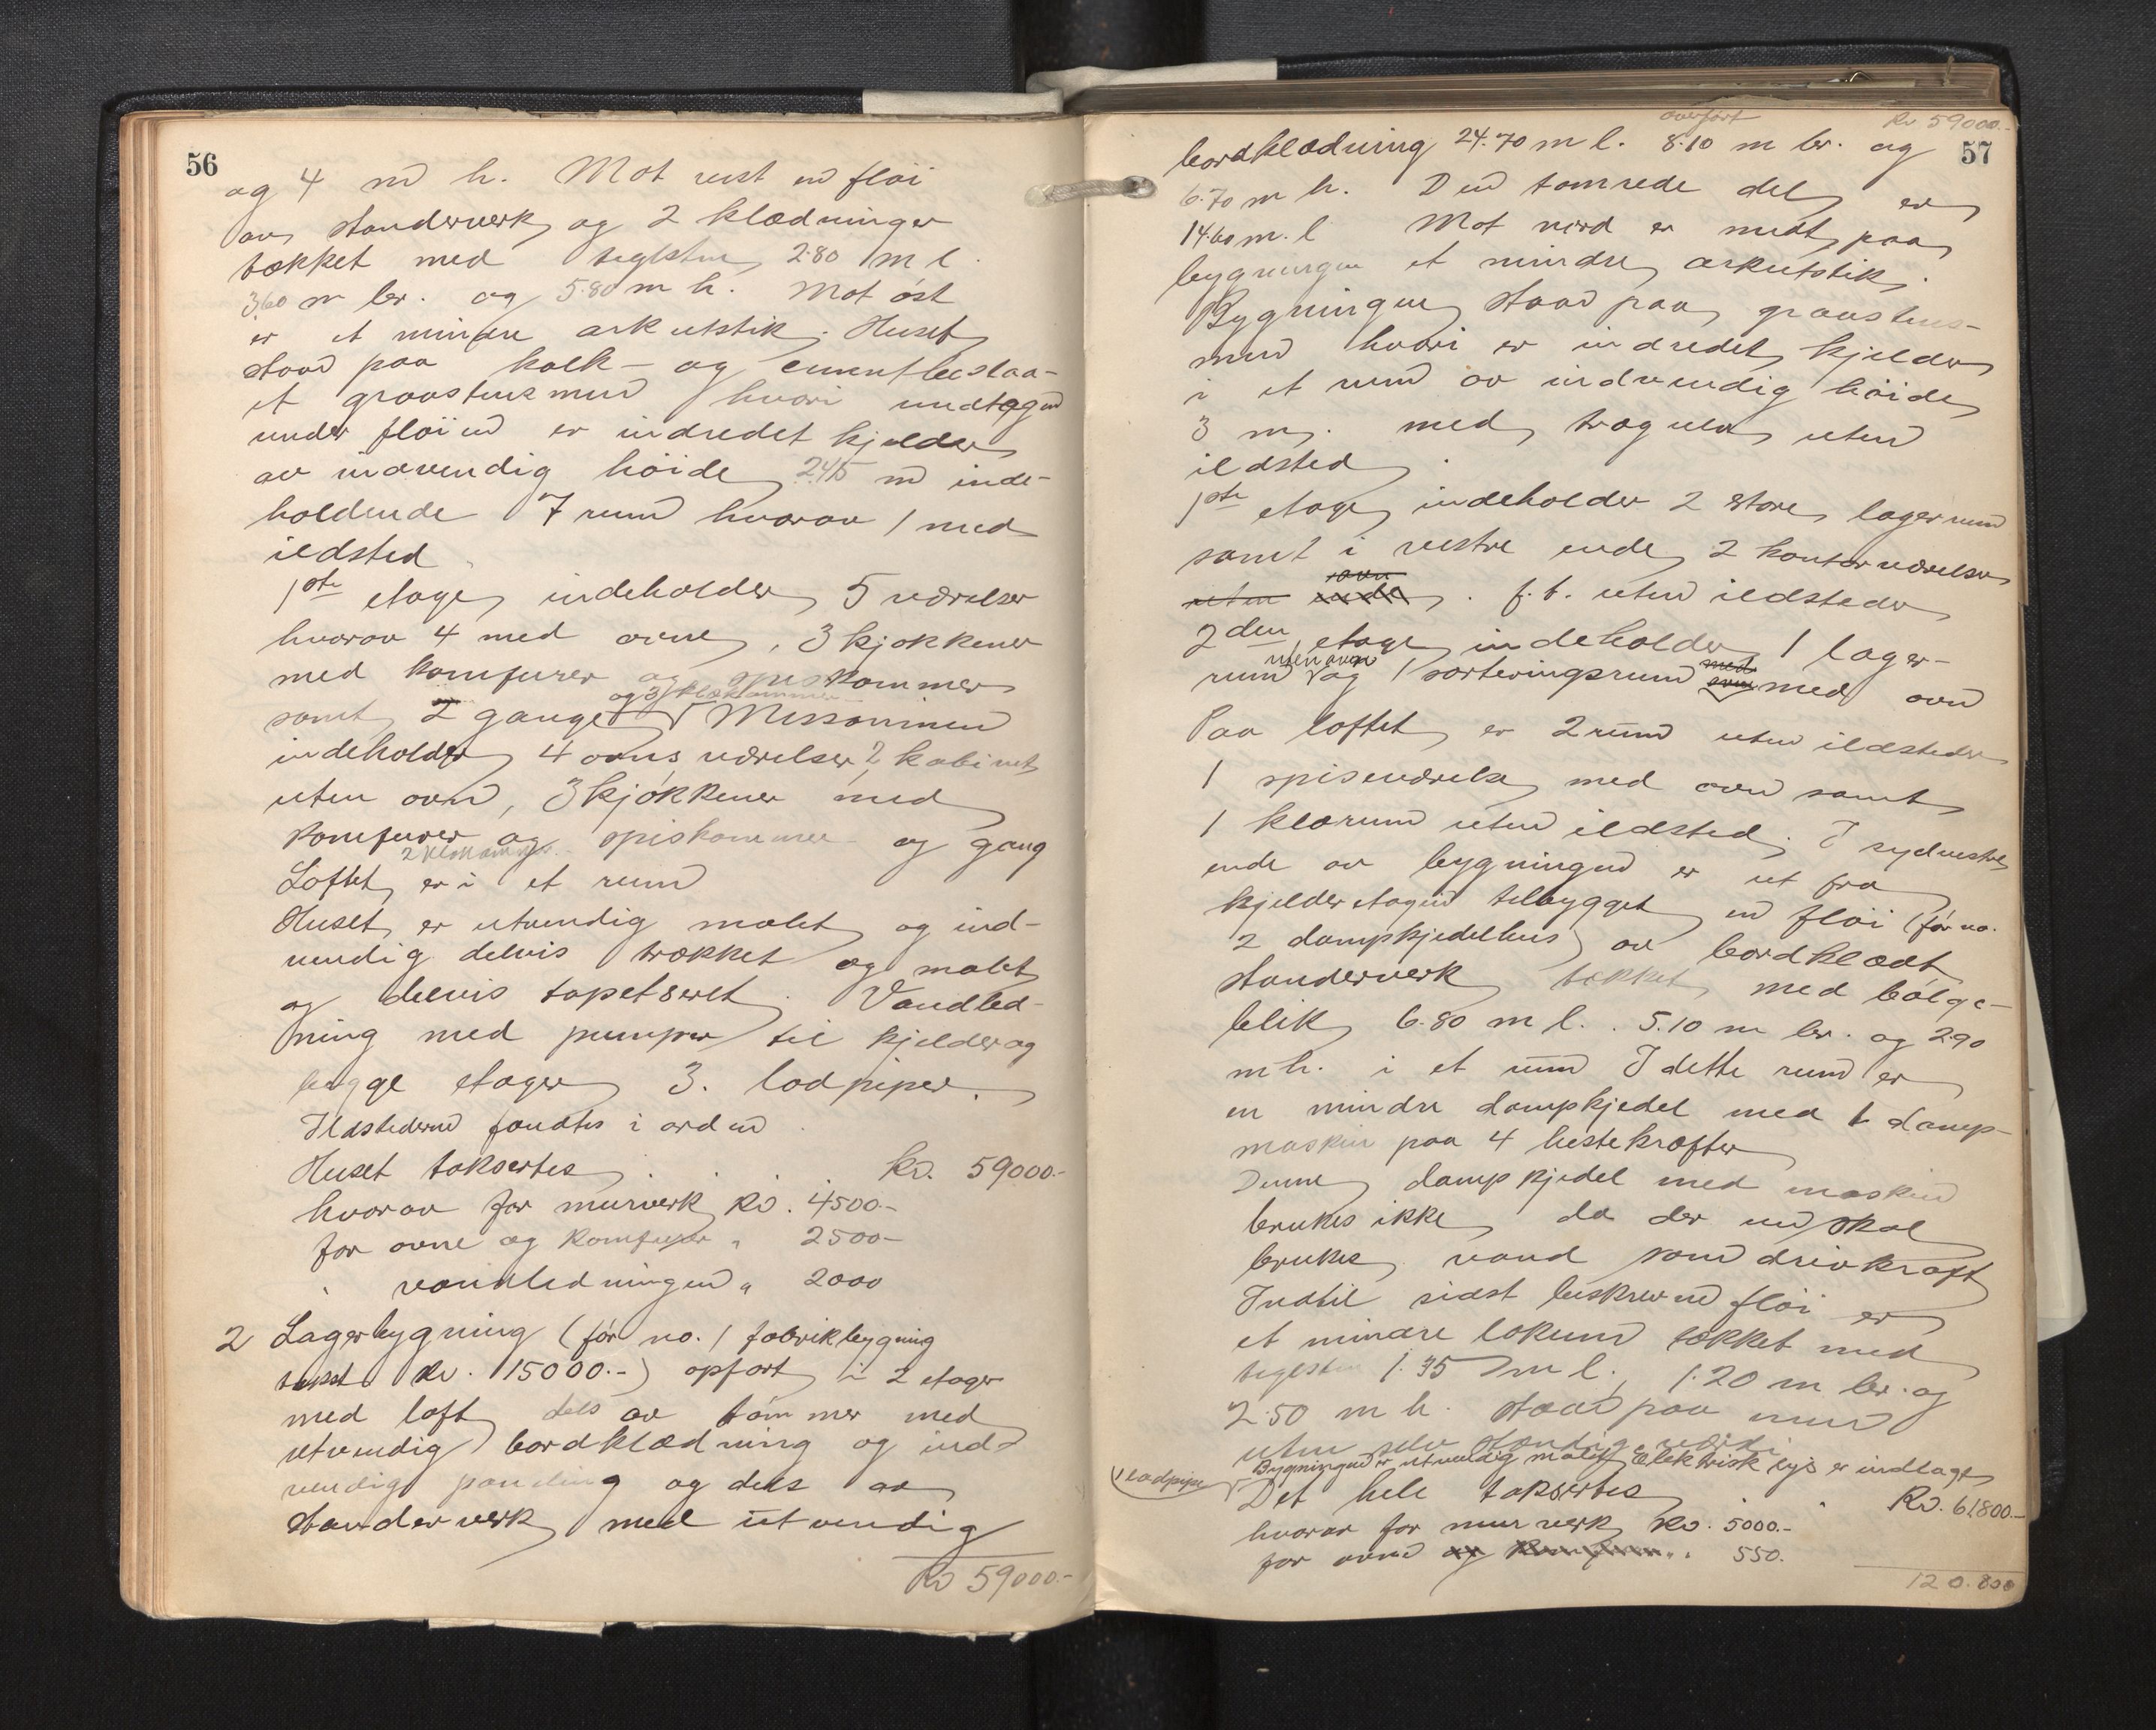 56
og 4 m h. Mot vest en fløi
av standerverk og 2 klædninger
tækket med teglsten 2.80 m l.
3.60 m br. og 5.80 m h. Mot øst
er et mindre arkutstik. Huset
staar paa kalk- og cementbeslaa-
et graastensmur hvori undtagen
under fløien er indredet kjelder
av indvendig høide 2.45 m inde-
holdende 7 rum hvorav 1 med
ildsted.
1ste etage indeholder 5 værelser
hvorav 4 med ovne, 3 kjøkkener
med komfurer og spiskammer
og 3 klækammer
samt 2 gange Messaninen
indeholder 4 ovns værelser 2 kabinet
uten ovn, 3 kjøkkener med
komfurer og spiskammer og gang
Loftet er i et rum
Huset er utvendig malet og ind-
vendig delvis trækket og malet
og delvis tapetseret. Vandled-
ning med pumper til kjelder og
begge etager 3. lodpiper.
Ildstederne fandtes i orden.
Huset taksertes . . . kr. 59000.-
hvorav for murverk kr. 4500.-
for ovne og komfurer " 2500-
" vandledningen " 2000
2 Lagerbygning (før no. 1 fabrikbygning
takst kr. 15000.-) opført i 2 etager
med loft dels av tømmer med
utvendig bordklædning og ind-
vendig paneling og dels av
standerverk med utvendig
Kr 59000.-
overført Kr 59000.-
57
bordklædning 24.70 m l. 8.10 m br. og
6.70 m h. Den tømrede del er
14.60 m. l Mot nord er midt paa
bygningen et mindre arkutstik.
Bygningen staar paa graastens-
mur hvori er indredet kjelder
i et rum av indvendig høide
3 m. med trægulv uten
ildsted.
1ste etage indeholder 2 store lagerrum
samt i vestre ende 2 kontorværelser
ovn
uten . f. t. uten ildsteder
2den etage indeholder 1 lager-
uten ovn
rum og 1 sorteringsrum med ovn
Paa loftet er 2 rum uten ildsteder
1 spiseværelse med ovn samt
1 klærum uten ildsted. I sydvestre
ende av bygningen er ut fra
kjelderetagen tilbygget en fløi (før no.
2 dampkjedelhus) av bordklædt
standerverk tækket med bølge-
blik 6.80 m l. 5.10 m br. og 2.90
m h. i et rum I dette rum er
en mindre dampkjedel med 1 damp-
maskin paa 4 hestekræfter
Denne dampkjedel med maskin
brukes ikke da der nu skal
brukes vand som drivkraft
Indtil sidst beskrevne fløi er
et mindre lokum tækket med
teglsten 1.35 m l., 1.20 m br. og
2.50 m h. staar paa mur
uten selvstændig værdi
Bygningen er utvendig malet Elektrisk lys er indlagt
1 lodpipe
Det hele taksertes . . Kr. 61800.-
hvorav for murverk Kr. 5000.-
for ovne og komfurer " 550.
120.800